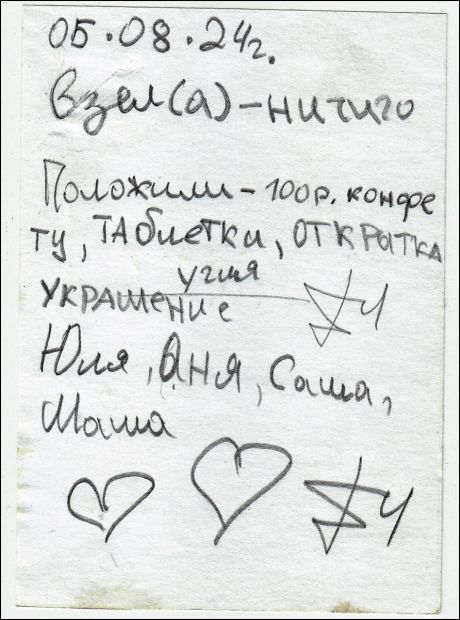 05.08.24г.
Взел(а)-ничиго
Положили-100р. конфе
ту, ТАблетки, ОТКРЫТКА
угля
УКРАШЕНИЕ
Юля, Аня, Саша,
Маша